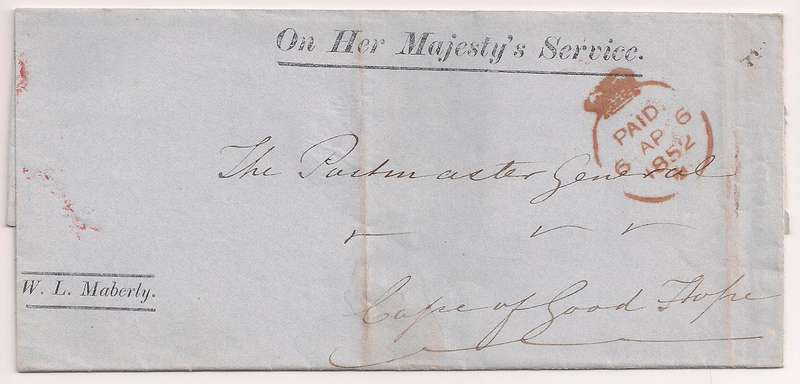 On Her Majesty's Service.
PAID
6 AP 6
1852
The Postmaster General
W. L. Maberly.
Cape of Good Hope